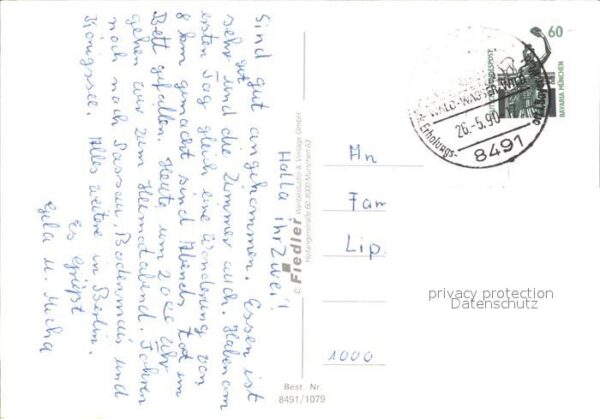 Halla ihr Zwei!
Sind gut angekommen. Essen ist
sehr gut und die Zimmer auch. Haben am
ersten Tag gleich eine Wanderung von
8 km gemacht sind Abends tot im
Bett gefallen. Heute um 20.00 Uhr
gehen wir zum Heimatabend. Fahren
noch nach Passau, Bodenmais und
Königssee. Alles weitere in Berlin.
Es grüsst
Gila u. Micha
© Fiedler Werbestudio & Verlags GmbH
8000 München 60
Best. Nr.
8491/1079
60
BAVARIA MÜNCHEN
WALD-WASSER
26.-5.90
Erholungs-
8491
An
Fam
Lip
1000
privacy protection
Datenschutz